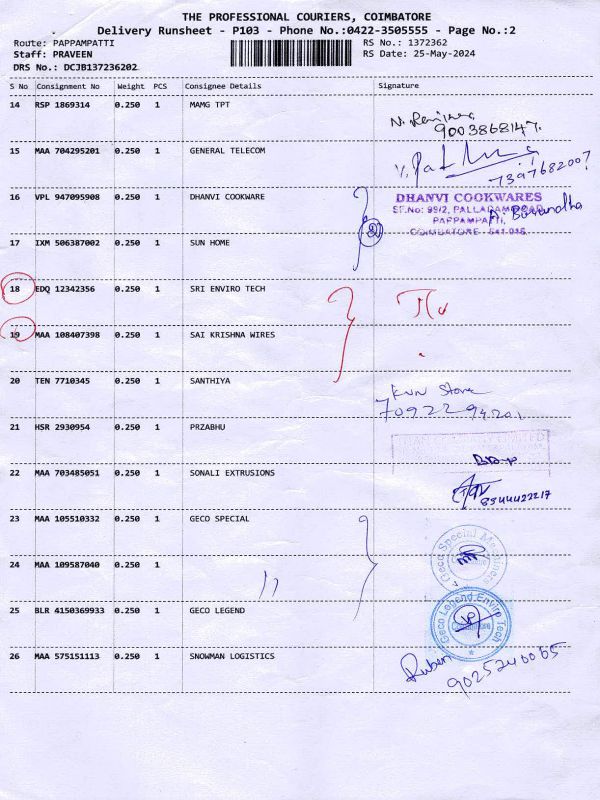 THE PROFESSIONAL COURIERS, COIMBATORE
Delivery Runsheet - P103 - Phone No.:0422-3505555 - Page No.:2
Route: PAPPAMPATTI RS No.: 1372362
Staff: PRAVEEN RS Date: 25-May-2024
DRS No.: DCJB137236202
S No Consignment No Weight PCS Consignee Details Signature
14 RSP 1869314 0.250 1 MAMG TPT
9003868147.
15 MAA 704295201 0.250 1 GENERAL TELECOM
7397682007
16 VPL 947095908 0.250 1 DHANVI COOKWARE DHANVI COOKWARES
SF.No: 99/2, PALLADAM ROAD,
PAPPAMPATTI,
COIMBATORE - 641 016.
17 IXM 506387002 0.250 1 SUN HOME
18 EDQ 12342356 0.250 1 SRI ENVIRO TECH
19 MAA 108407398 0.250 1 SAI KRISHNA WIRES
20 TEN 7710345 0.250 1 SANTHIYA
Store
7092294201
21 HSR 2930954 0.250 1 PRZABHU
22 MAA 703485051 0.250 1 SONALI EXTRUSIONS
8344422217
23 MAA 105510332 0.250 1 GECO SPECIAL
Geco Special
24 MAA 109587040 0.250 1 "
25 BLR 4150369933 0.250 1 GECO LEGEND
Geco Legend Enviro Tech
26 MAA 575151113 0.250 1 SNOWMAN LOGISTICS
Ruben
9025240065